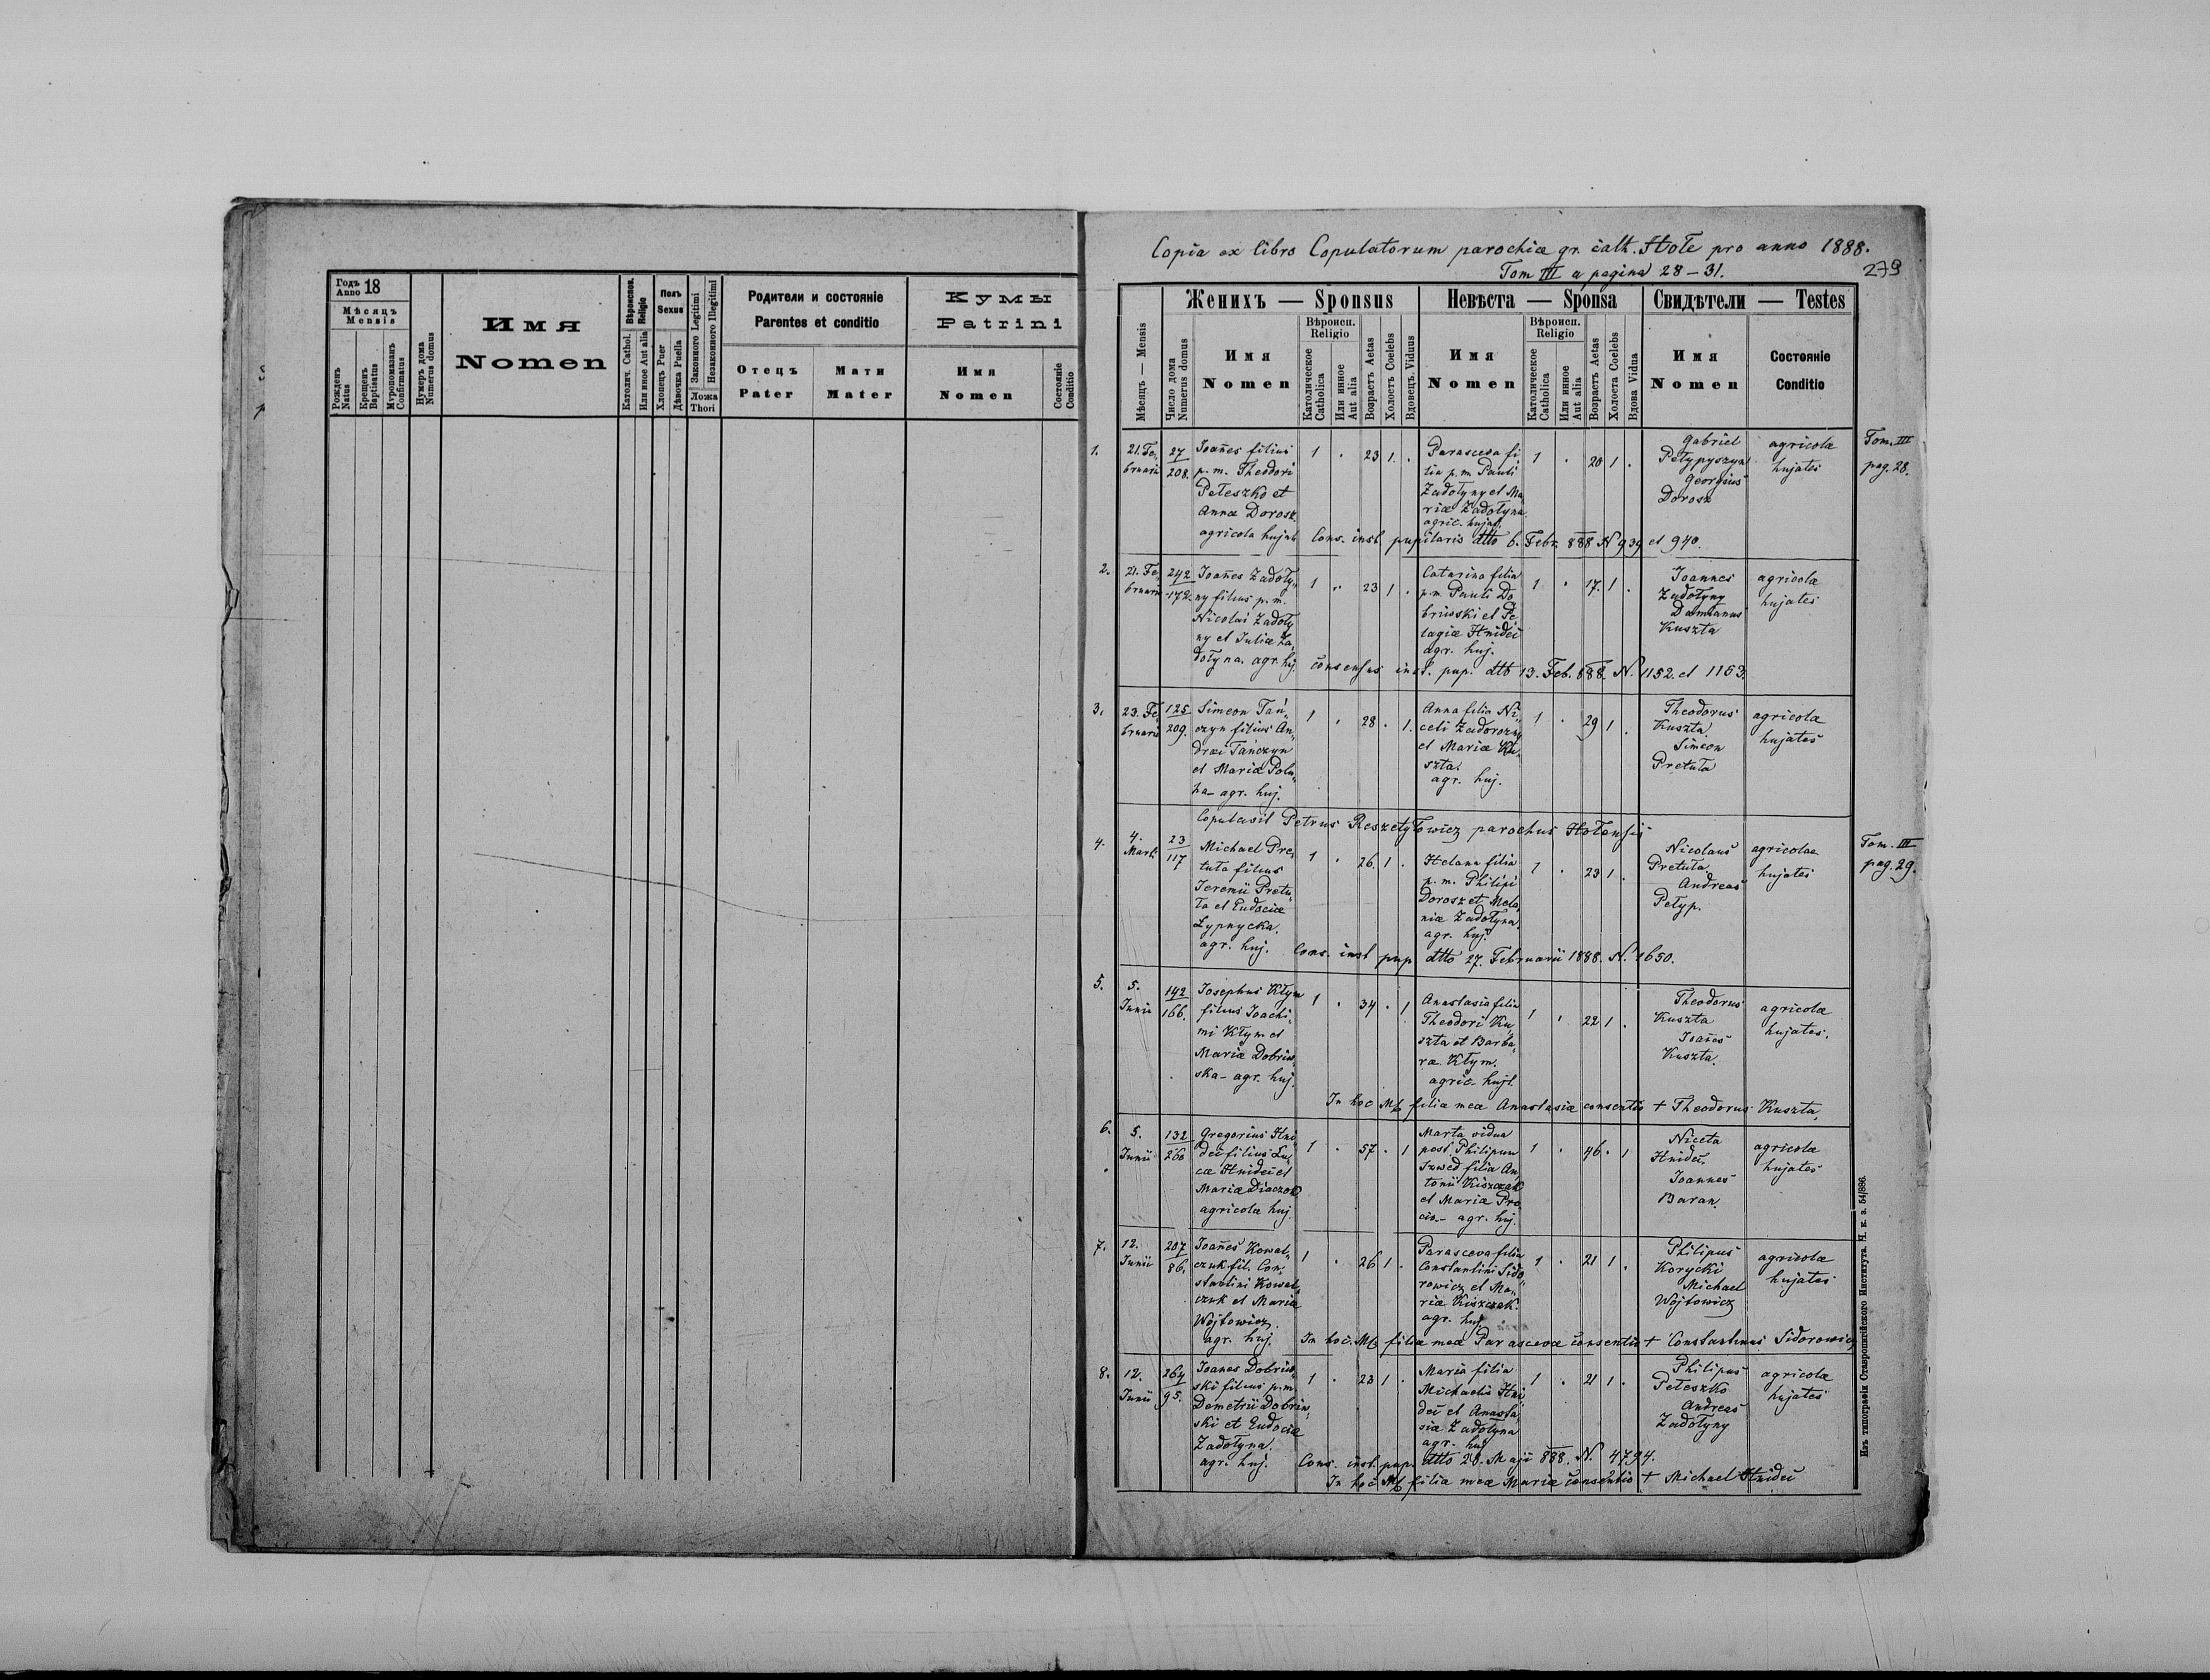 Годъ Anno 18
Мѣсяцъ
Mensis
Рожденъ Natus
Крещенъ Baptisatus
Мѵропомазанъ Confirmatus
Нумеръ дома Numerus domus
Имя
Nomen
Вѣроиспов. Religio
Католич. Cathol.
Или иное Aut alia
Полъ
Sexus
Хлопецъ Puer
Дѣвочка Puella
Законного Legitimi
Незаконного Illegitimi
Ложа
Thori
Родители и состояніе
Parentes et conditio
Отецъ
Pater
Мати
Mater
Кумы
Patrini
Имя
Nomen
Состояніе
Conditio
Copia ex libro Copulatorum parochiæ gr. cath. Hołe pro anno 1888.
Tom III a pagina 28 – 31.
279
Мѣсяцъ — Mensis
Число дома
Numerus domus
Женихъ — Sponsus
Имя
Nomen
Вѣроисп.
Religio
Католическое
Catholica
Или инное
Aut alia
Возрастъ Aetas
Холостъ Coelebs
Вдовецъ. Viduus
Невѣста — Sponsa
Имя
Nomen
Вѣроисп.
Religio
Католическое
Catholica
Или инное
Aut alia
Возрастъ Aetas
Холоста Coelebs
Вдова Vidua
Свидѣтели — Testes
Имя
Nomen
Состояніе
Conditio
1.
21. Fe-
bruarii
27
208.
Joañes filius
p. m. Theodori
Pełeszko et
Annæ Dorosz
agricola hujat.
1 . 23 1 .
Parasceva fi
lia p. m. Pauli
Zadołyny et Ma
riæ Zadołyna
agric. hujat.
1 . 20 1 .
Gabriel
Pełypyszyn
Georgius
Dorosz
agricolæ
hujates
Tom. III
pag. 28.
Cons. inst. pupilaris dtto 6. Febr. 888 N 939 et 940.
2.
21. Fe-
bruarii
242
172.
Joañes Zadoły-
ny filius p. m.
Nicolai Zadoły
ny et Juliæ Za-
dołyna. agr. hj.
1 . 23 1 .
Catarina filia
p. m. Pauli Do
briwski et Pe
lagiæ Hnideć
agr. huj.
1 . 17. 1 .
Joannes
Zadołyny
Damianus
Kuszta
agricolæ
hujates
consensus inst. pup. dtto 13. Feb. 888. N. 1152. et 1153.
3.
23. Fe-
bruarii
125
209.
Simeon Tań-
czyn filius An-
dreæ Tańczyn
et Maria
agr. huj.
1 . 28 . 1.
Anna filia Ni-
ceti Zadorozny
et Mariæ Ku-
szta.
agr. huj.
1 . 29 1 .
Theodorus
Kuszta
Simeon
Pretuła
agricolæ
hujates
Copulavit Petrus Reszetyłowicz parochus Hołensis
4.
4.
Marti
23
117
Michael Pre-
tuła filius
Jeremii Pretu-
ła et Eudociæ
Łypnycka.
agr. huj.
1 . 26. 1 .
Helena filia
p. m. Philipi
Dorosz et Mela
niæ Zadołyna.
agr. huj.
1 . 23 1 .
Nicolaus
Pretuła
Andreas
Pełyp.
agricolae
hujates
Tom. III
pag. 29.
Cons. inst pup dtto 27. Februarii 1888. N. 1650.
5.
5.
Junii
142
166.
Josephus Kłym
filius Joachi-
mi Kłym et
Mariæ Dobriw
ska – agr. huj.
1 . 34 . 1
Anastasia filia
Theodori Ku-
szta et Barba-
ræ Kłym.
agric. hujt.
1 . 22 1 .
Theodorus
Kuszta
Joañes
Kuszta.
agricolæ
hujates.
In hoc filiæ meæ Anastasiæ consentio + Theodorus Kuszta.
6.
5.
Junii
132
260
Gregorius Hni
deć filius Lu-
cæ Hnideć et
Mariæ Diaczok
agricola huj.
1 . 57 . 1
Marta vidua
post Philipum
Izwed filia An
tonii Kiszczak
et Mariæ Pro
ciw – agr. huj.
1 . 46 . 1
Niceta
Hnideć.
Joannes
Baran.
agricolæ
hujates
7.
12.
Junii
207
86.
Joañes Kowal-
czuk fil. Con-
stantini Kowal-
czuk et Mariæ
Wojtowicz.
agr. huj.
1 . 26 1 .
Parasceva filia
Constantini Sido
rowicz et Ma-
riæ Kiszczak.
agr. huj.
1 . 21 1 .
Philipus
Korycki
Michael
Wojtowicz
agricolæ
hujates
In hoc filiæ meæ Parascevæ consentio + Constantinus Sidorowicz
8.
12.
Junii
264
95.
Joanes Dobriw
ski filius p. m.
Demetrii Dobriw-
ski et Eudociæ
Zadołyna.
agr. huj.
1 . 23 1 .
Maria filia
Michaelis Hni
deć et Anasta
siæ Zadołyna
agr. huj
1 . 21 1 .
Philipus
Pełeszko
Andreas
Zadołyny
agricolæ
hujates
Cons. inst. pup. dtto 28. Maji 888. N. 4794.
In hoc filiæ meæ Mariæ consentio + Michael Hnideć
Изъ типографіи Ставропигійского Института. Ч. к. з. 54/886.